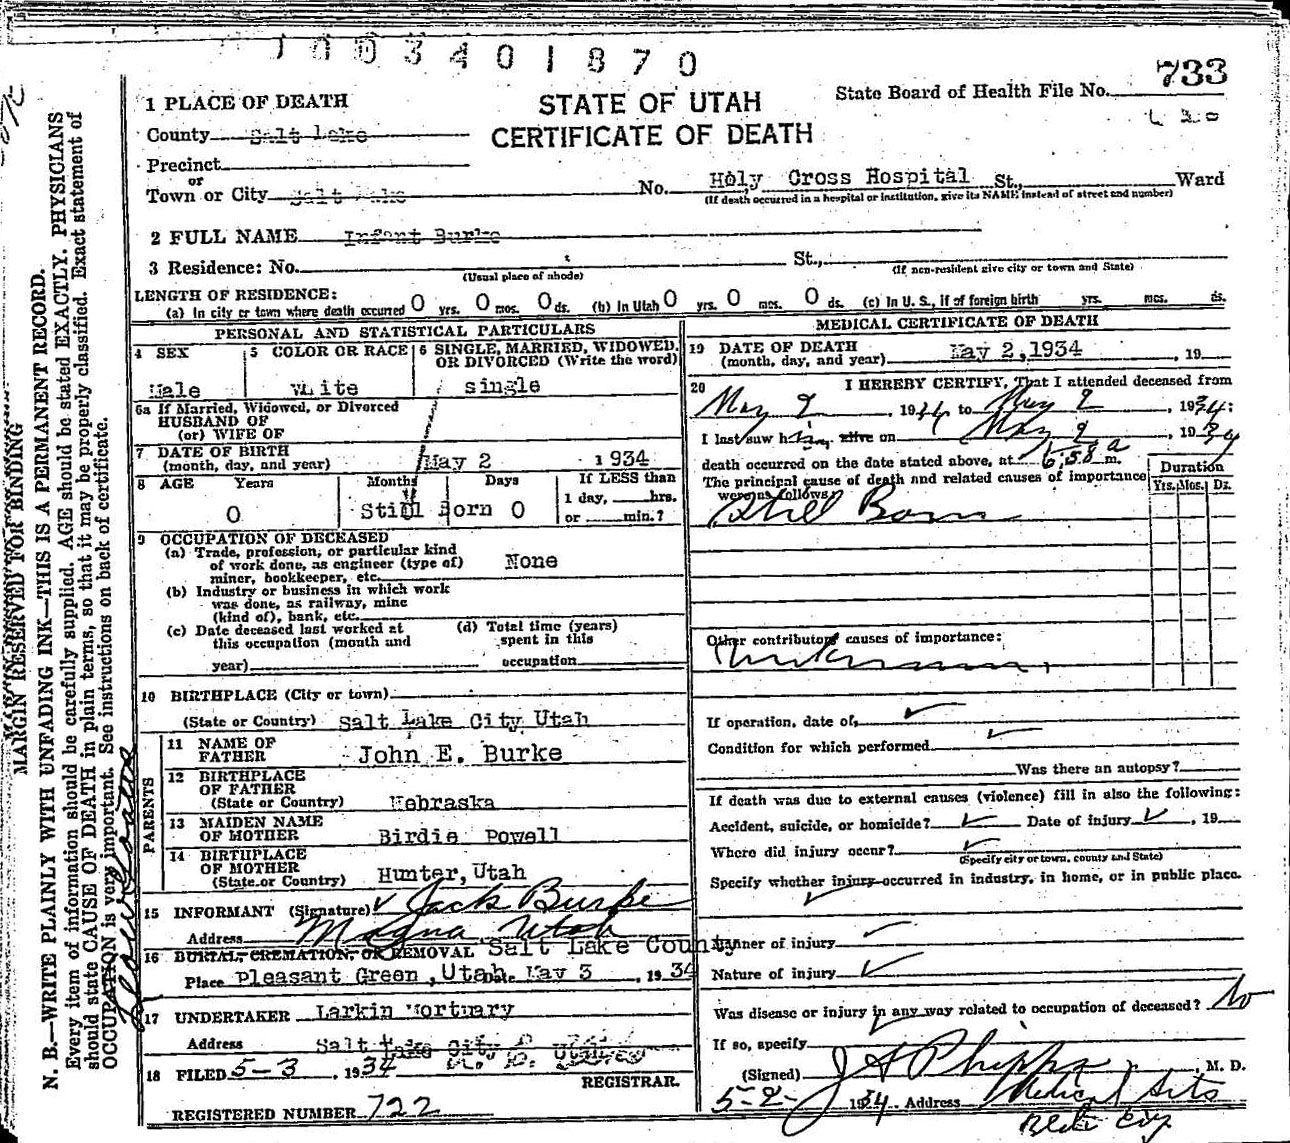 1003401870
733
1 PLACE OF DEATH
STATE OF UTAH
State Board of Health File No.
County Salt Lake
CERTIFICATE OF DEATH
Precinct
or
Town or City Salt Lake No. Holy Cross Hospital St., Ward
(If death occurred in a hospital or institution, give its NAME instead of street and number)
2 FULL NAME Infant Burke
3 Residence: No. St.,
(Usual place of abode) (If non-resident give city or town and State)
LENGTH OF RESIDENCE:
(a) In city or town where death occurred 0 yrs. 0 mos. 0 ds. (b) In Utah 0 yrs. 0 mos. 0 ds. (c) In U. S., if of foreign birth yrs. mos. ds.
PERSONAL AND STATISTICAL PARTICULARS
4 SEX 5 COLOR OR RACE 6 SINGLE, MARRIED, WIDOWED, OR DIVORCED (Write the word)
Male White single
6a If Married, Widowed, or Divorced
HUSBAND OF
(or) WIFE OF
7 DATE OF BIRTH
(month, day, and year) May 2 1934
8 AGE Years Months Days If LESS than
1 day, hrs.
or min.?
0 Still Born 0
9 OCCUPATION OF DECEASED
(a) Trade, profession, or particular kind
of work done, as engineer (type of) None
miner, bookkeeper, etc.
(b) Industry or business in which work
was done, as railway, mine
(kind of), bank, etc.
(c) Date deceased last worked at (d) Total time (years)
this occupation (month and spent in this
year) occupation
10 BIRTHPLACE (City or town)
(State or Country) Salt Lake City Utah
PARENTS
11 NAME OF
FATHER John E. Burke
12 BIRTHPLACE
OF FATHER
(State or Country) Nebraska
13 MAIDEN NAME
OF MOTHER Birdie Powell
14 BIRTHPLACE
OF MOTHER
(State or Country) Hunter, Utah
15 INFORMANT (Signature) Jack Burke
Address Magna Utah
16 BURIAL, CREMATION, OR REMOVAL Salt Lake County
Place Pleasant Green, Utah Date May 3, 1934
17 UNDERTAKER Larkin Mortuary
Address Salt Lake City Utah
18 FILED 5-3, 1934
REGISTRAR.
REGISTERED NUMBER 722
MEDICAL CERTIFICATE OF DEATH
19 DATE OF DEATH
(month, day, and year) May 2, 1934, 19
20 I HEREBY CERTIFY, That I attended deceased from
May 2, 1934 to May 2, 1934:
I last saw him alive on May 2, 1934
death occurred on the date stated above, at 6:58 a m.
The principal cause of death and related causes of importance
were as follows:
Duration
Yrs. Mos. Ds.
Still Born
Other contributory causes of importance:
Unknown
If operation, date of,
Condition for which performed
Was there an autopsy?
If death was due to external causes (violence) fill in also the following:
Accident, suicide, or homicide? Date of injury, 19
Where did injury occur?
(Specify city or town, county and State)
Specify whether injury occurred in industry, in home, or in public place.
Manner of injury
Nature of injury
Was disease or injury in any way related to occupation of deceased? No
If so, specify
(Signed) J A Phipps, M. D.
5-2- 1934 Address Medical Arts
MARGIN RESERVED FOR BINDING
N. B.—WRITE PLAINLY WITH UNFADING INK—THIS IS A PERMANENT RECORD.
Every item of information should be carefully supplied. AGE should be stated EXACTLY. PHYSICIANS
should state CAUSE OF DEATH in plain terms, so that it may be properly classified. Exact statement of
OCCUPATION is very important. See instructions on back of certificate.